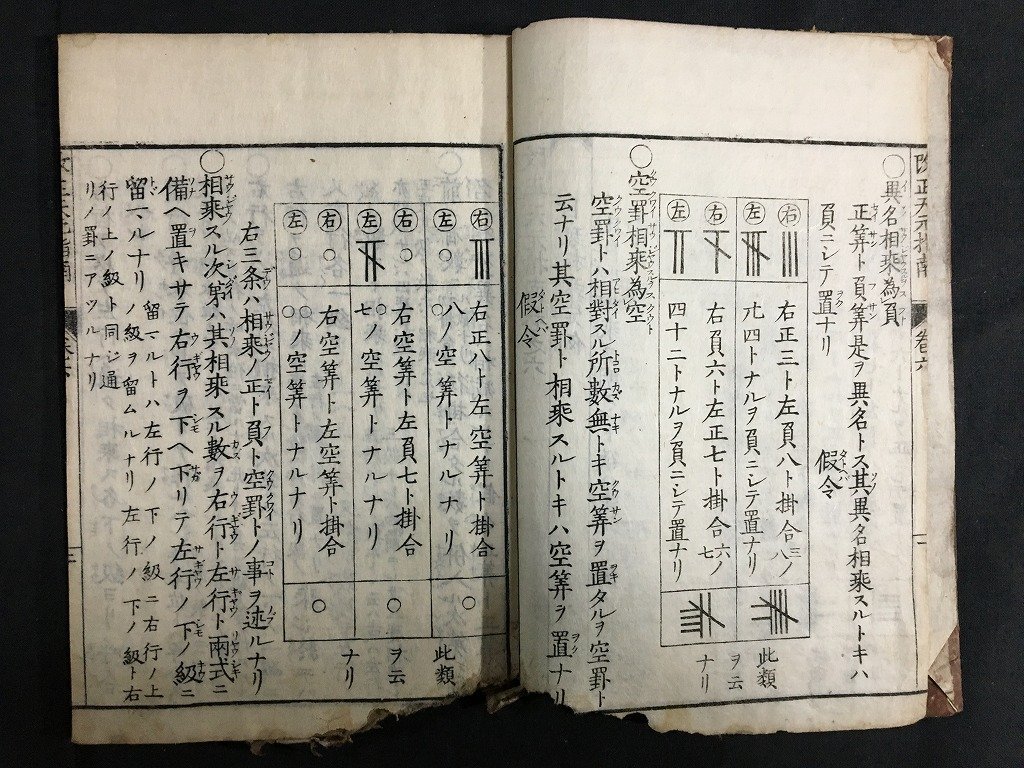 改正天元指南
巻六
○異名相乘為負
正筭ト負筭是ヲ異名トス其異名相乘スルトキハ
負ニシテ置ナリ
假令
右
右正三ト左負八ト掛合三八ノ
左
廿四トナルヲ負ニシテ置ナリ
右
右負六ト左正七ト掛合六ノ七
左
四十二トナルヲ負ニシテ置ナリ
此類
ヲ云
ナリ
○空罫相乘為空
空罫トハ相對スル所數無トキ空筭ヲ置タルヲ空罫ト
云ナリ其空罫ト相乘スルトキハ空筭ヲ置ナリ
假令
右
右正八ト左空筭ト掛合
左 ○
八ノ空筭トナルナリ
○
右 ○
右空筭ト左負七ト掛合
左
七ノ空筭トナルナリ
○
右 ○
右空筭ト左空筭ト掛合
左 ○
○ノ空筭トナルナリ
○
此類
ヲ云
ナリ
右三条ハ相乘ノ正ト負ト空罫トノ事ヲ述ルナリ
○相乘スル次第ハ其相乘スル數ヲ右行ト左行ト兩式ニ
備ヘ置キサテ右行ヲ下ヘ下リテ左行ノ下ノ級ニ
留マルナリ留マルトハ左行ノ下ノ級ニ右行ノ上
ノ級ヲ留ムルナリ左行ノ下ノ級ト右
行ノ上ノ級ト同シ通
リノ罫ニアツルナリ